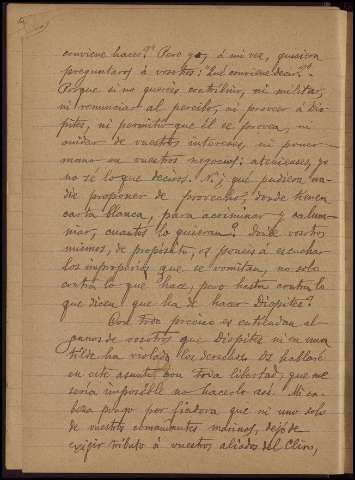 conviene hacer?" Pero yo, á mi vez, quisiera
preguntaros á vosotros: "Qué conviene decir?".
Porque si no quereis contribuir, ni militar,
ni renunciar al peculio, ni proveer á Dio-
pites, ni permitir que él se provea, ni
cuidar de vuestros intereses, ni poner
mano en vuestros negocios: atenienses, yo
no sé lo que deciros. Ni qué pudiera na-
die proponer de provecho, donde tienen
carta blanca, para acriminar y calum-
niar, cuantos lo quieran? donde vosotros
mismos, de propósito, os poneis á escuchar
los improperios que se vomitan, no solo
contra lo que hace, pero hasta contra lo
que dicen que ha de hacer Diopites?
Con toda
de vosotros que Diopites ni en una
tilde ha violado los derechos. Os hablaré
en este asunto con toda libertad, que me
sería imposible no hacerlo así. Mi ca-
beza pongo por fiadora que ni uno solo
de vuestros comandantes marinos, dejó de
exigir tributo á vuestros aliados del Chios,